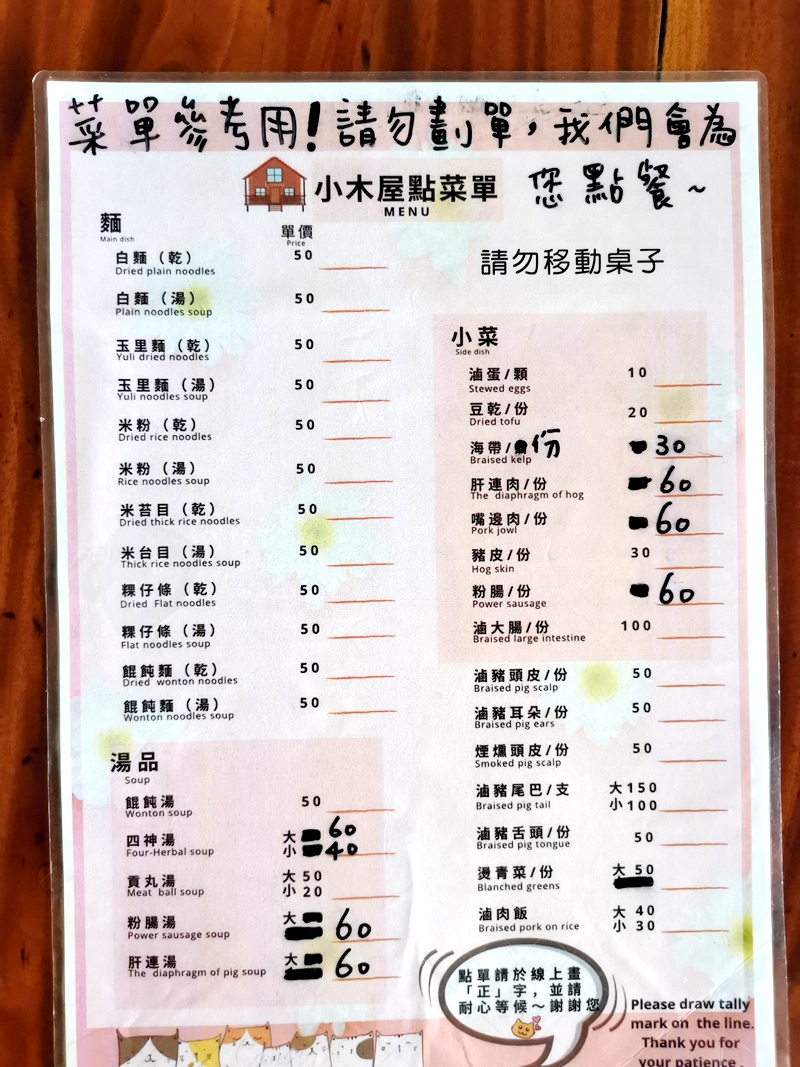 菜單參考用!請勿劃單,我們會為
您點餐~
小木屋點菜單
MENU
請勿移動桌子
麵
Main dish
單價
Price
白麵（乾） 50
Dried plain noodles
白麵（湯） 50
Plain noodles soup
玉里麵（乾） 50
Yuli dried noodles
玉里麵（湯） 50
Yuli noodles soup
米粉（乾） 50
Dried rice noodles
米粉（湯） 50
Rice noodles soup
米苔目（乾） 50
Dried thick rice noodles
米台目（湯） 50
Thick rice noodles soup
粿仔條（乾） 50
Dried Flat noodles
粿仔條（湯） 50
Flat noodles soup
餛飩麵（乾） 50
Dried wonton noodles
餛飩麵（湯） 50
Wonton noodles soup
湯品
Soup
餛飩湯 50
Wonton soup
四神湯 大 60
Four-Herbal soup 小 40
貢丸湯 大 50
Meat ball soup 小 20
粉腸湯 大 60
Power sausage soup
肝連湯 大 60
The diaphragm of pig soup
小菜
Side dish
滷蛋/顆 10
Stewed eggs
豆乾/份 20
Dried tofu
海帶/份 30
Braised kelp
肝連肉/份 60
The diaphragm of hog
嘴邊肉/份 60
Pork jowl
豬皮/份 30
Hog skin
粉腸/份 60
Power sausage
滷大腸/份 100
Braised large intestine
滷豬頭皮/份 50
Braised pig scalp
滷豬耳朵/份 50
Braised pig ears
煙燻頭皮/份 50
Smoked pig scalp
滷豬尾巴/支 大 150
Braised pig tail 小 100
滷豬舌頭/份 50
Braised pig tongue
燙青菜/份 大 50
Blanched greens
滷肉飯 大 40
Braised pork on rice 小 30
點單請於線上畫
「正」字，並請
耐心等候～謝謝您
Please draw tally
mark on the line.
Thank you for
your patience .